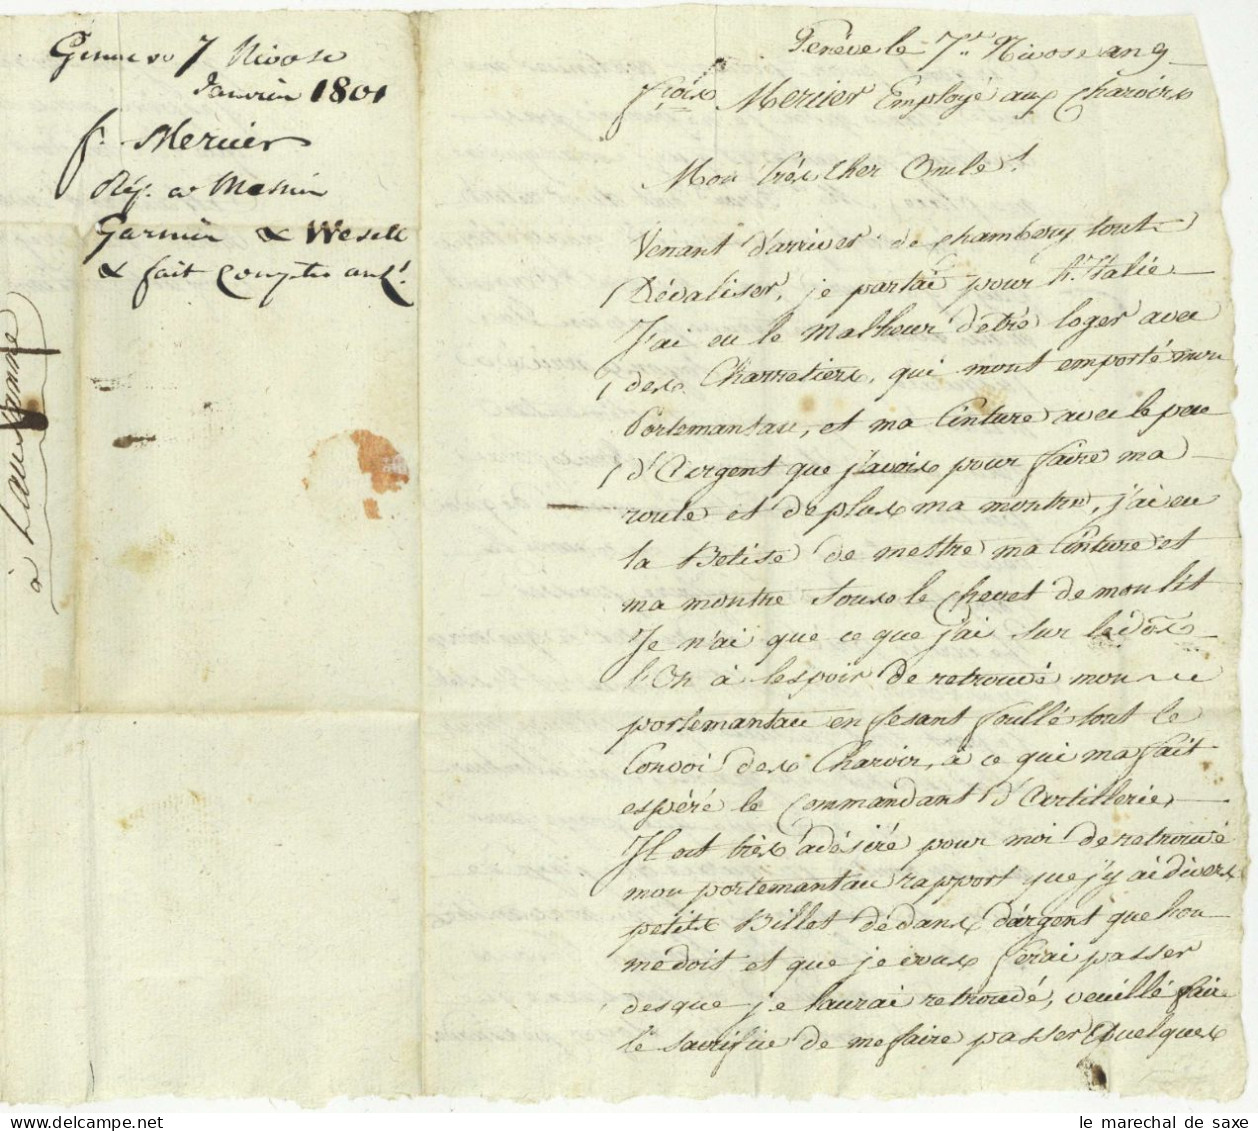 Geneve 7 Nivose
Janvier 1801
f. Mercier
Rép. a Messieurs
Garnier & Wesell
& fait Compter auf.
à Lausanne
Genêve le 7e. Nivose an 9
fçois Mercier Employé aux Charoix
Mon très Cher Oncle!
Venant d'arriver de Chambery tout
Dévaliser, je partai pour l'Italie
J'ai eu le Malheur d'être loger avec
des Charretiers, qui mont emporté mon
Portemantau, et ma Cinture avec le peu
d'Argent que j'avoix pour faire ma
route et de plus ma montre, j'ai eu
la Betise de mettre ma Cinture et
ma montre Sous le Chevet de mon lit
Je n'ai que ce que j'ai sur le dos
l'On à lespoir de retrouvé mon
portemantau en fesant foullé tout le
Convoi des Charoir, à ce qui ma fait
espéré le Commandant d'Artillerie,
Il est très à désiré pour moi de retrouvé
mon portemantau rapport que j'y ai divers
petits Billet dédans d'argent que l'on
me doit et que je vous ferai passer
desque je l'aurai retrouvé, veuillé faire
le sacrifice de me faire passer Quelques
le marechal de saxe